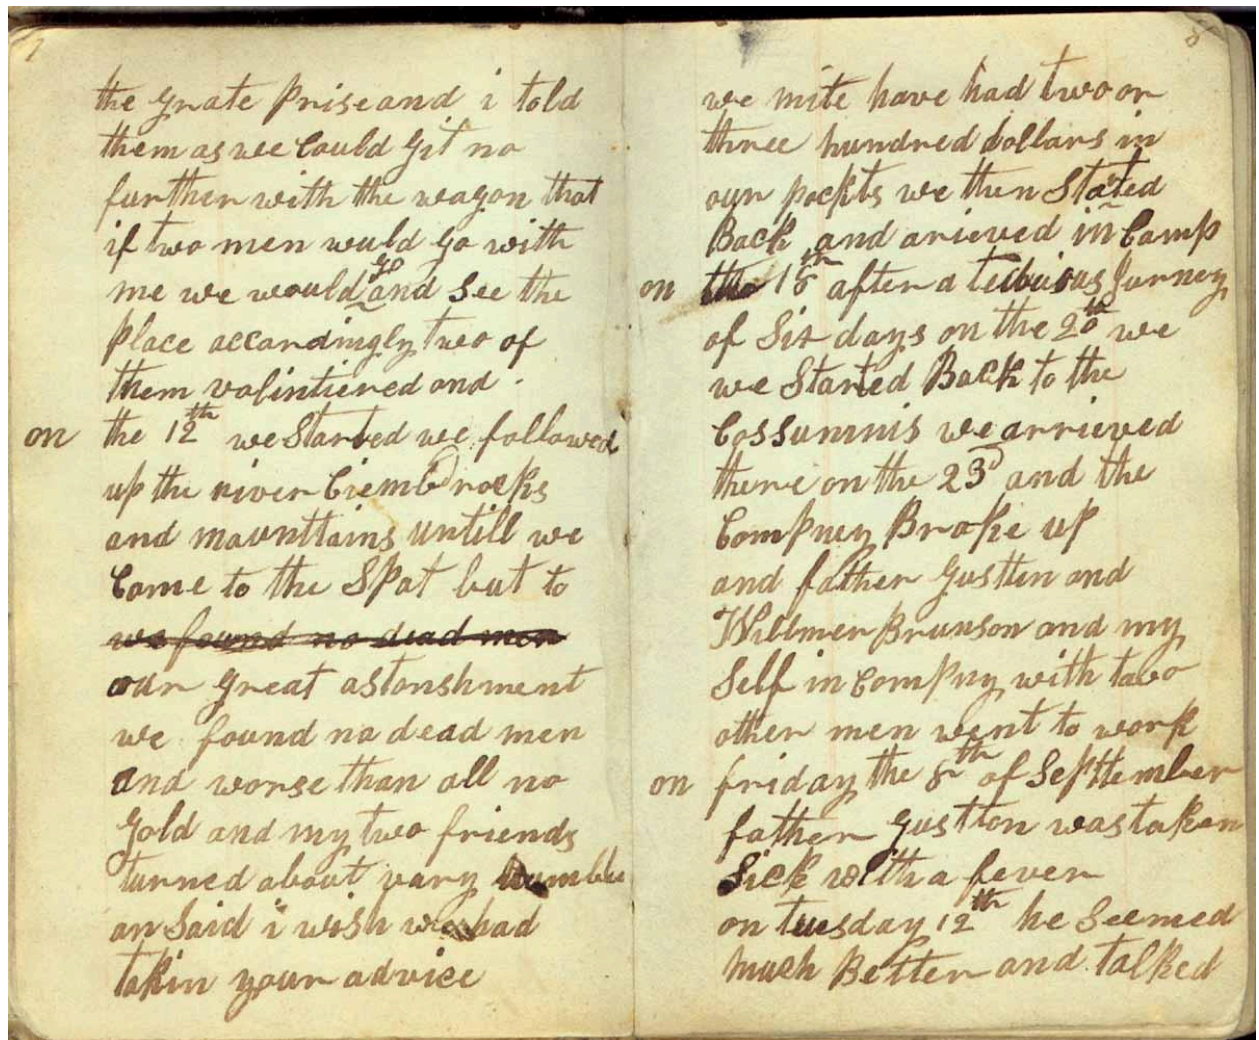 7
the grate Prise and i told
them as we Could git no
further with the wagon that
if two men would go with
me we would go and See the
Place accordingly two of
them valintiered and
on the 12th we Started we followed
up the river Ciembd rocks
and maunttains untill we
Come to the Spot but to
we found no dead men
our great astonshment
we found no dead men
and worse than all no
gold and my two friends
turned about vary humble
an Said i wish we had
takin your advice
8
we mite have had two or
three hundred dollars in
our pockits we then Stated
Back and arieved in Camp
on the 18th after a tedious Jurney
of Six days on the 20th we
we Started Back to the
Cossumnis we arrieved
there on the 23d and the
Compney Broke up
and father Gustten and
Willmer Brunson and my
Self in Compny with two
other men went to work
on friday the 8th of Septtember
father Gustton was taken
Sick with a fever
on tuesday 12th he Seemed
much Better and talked